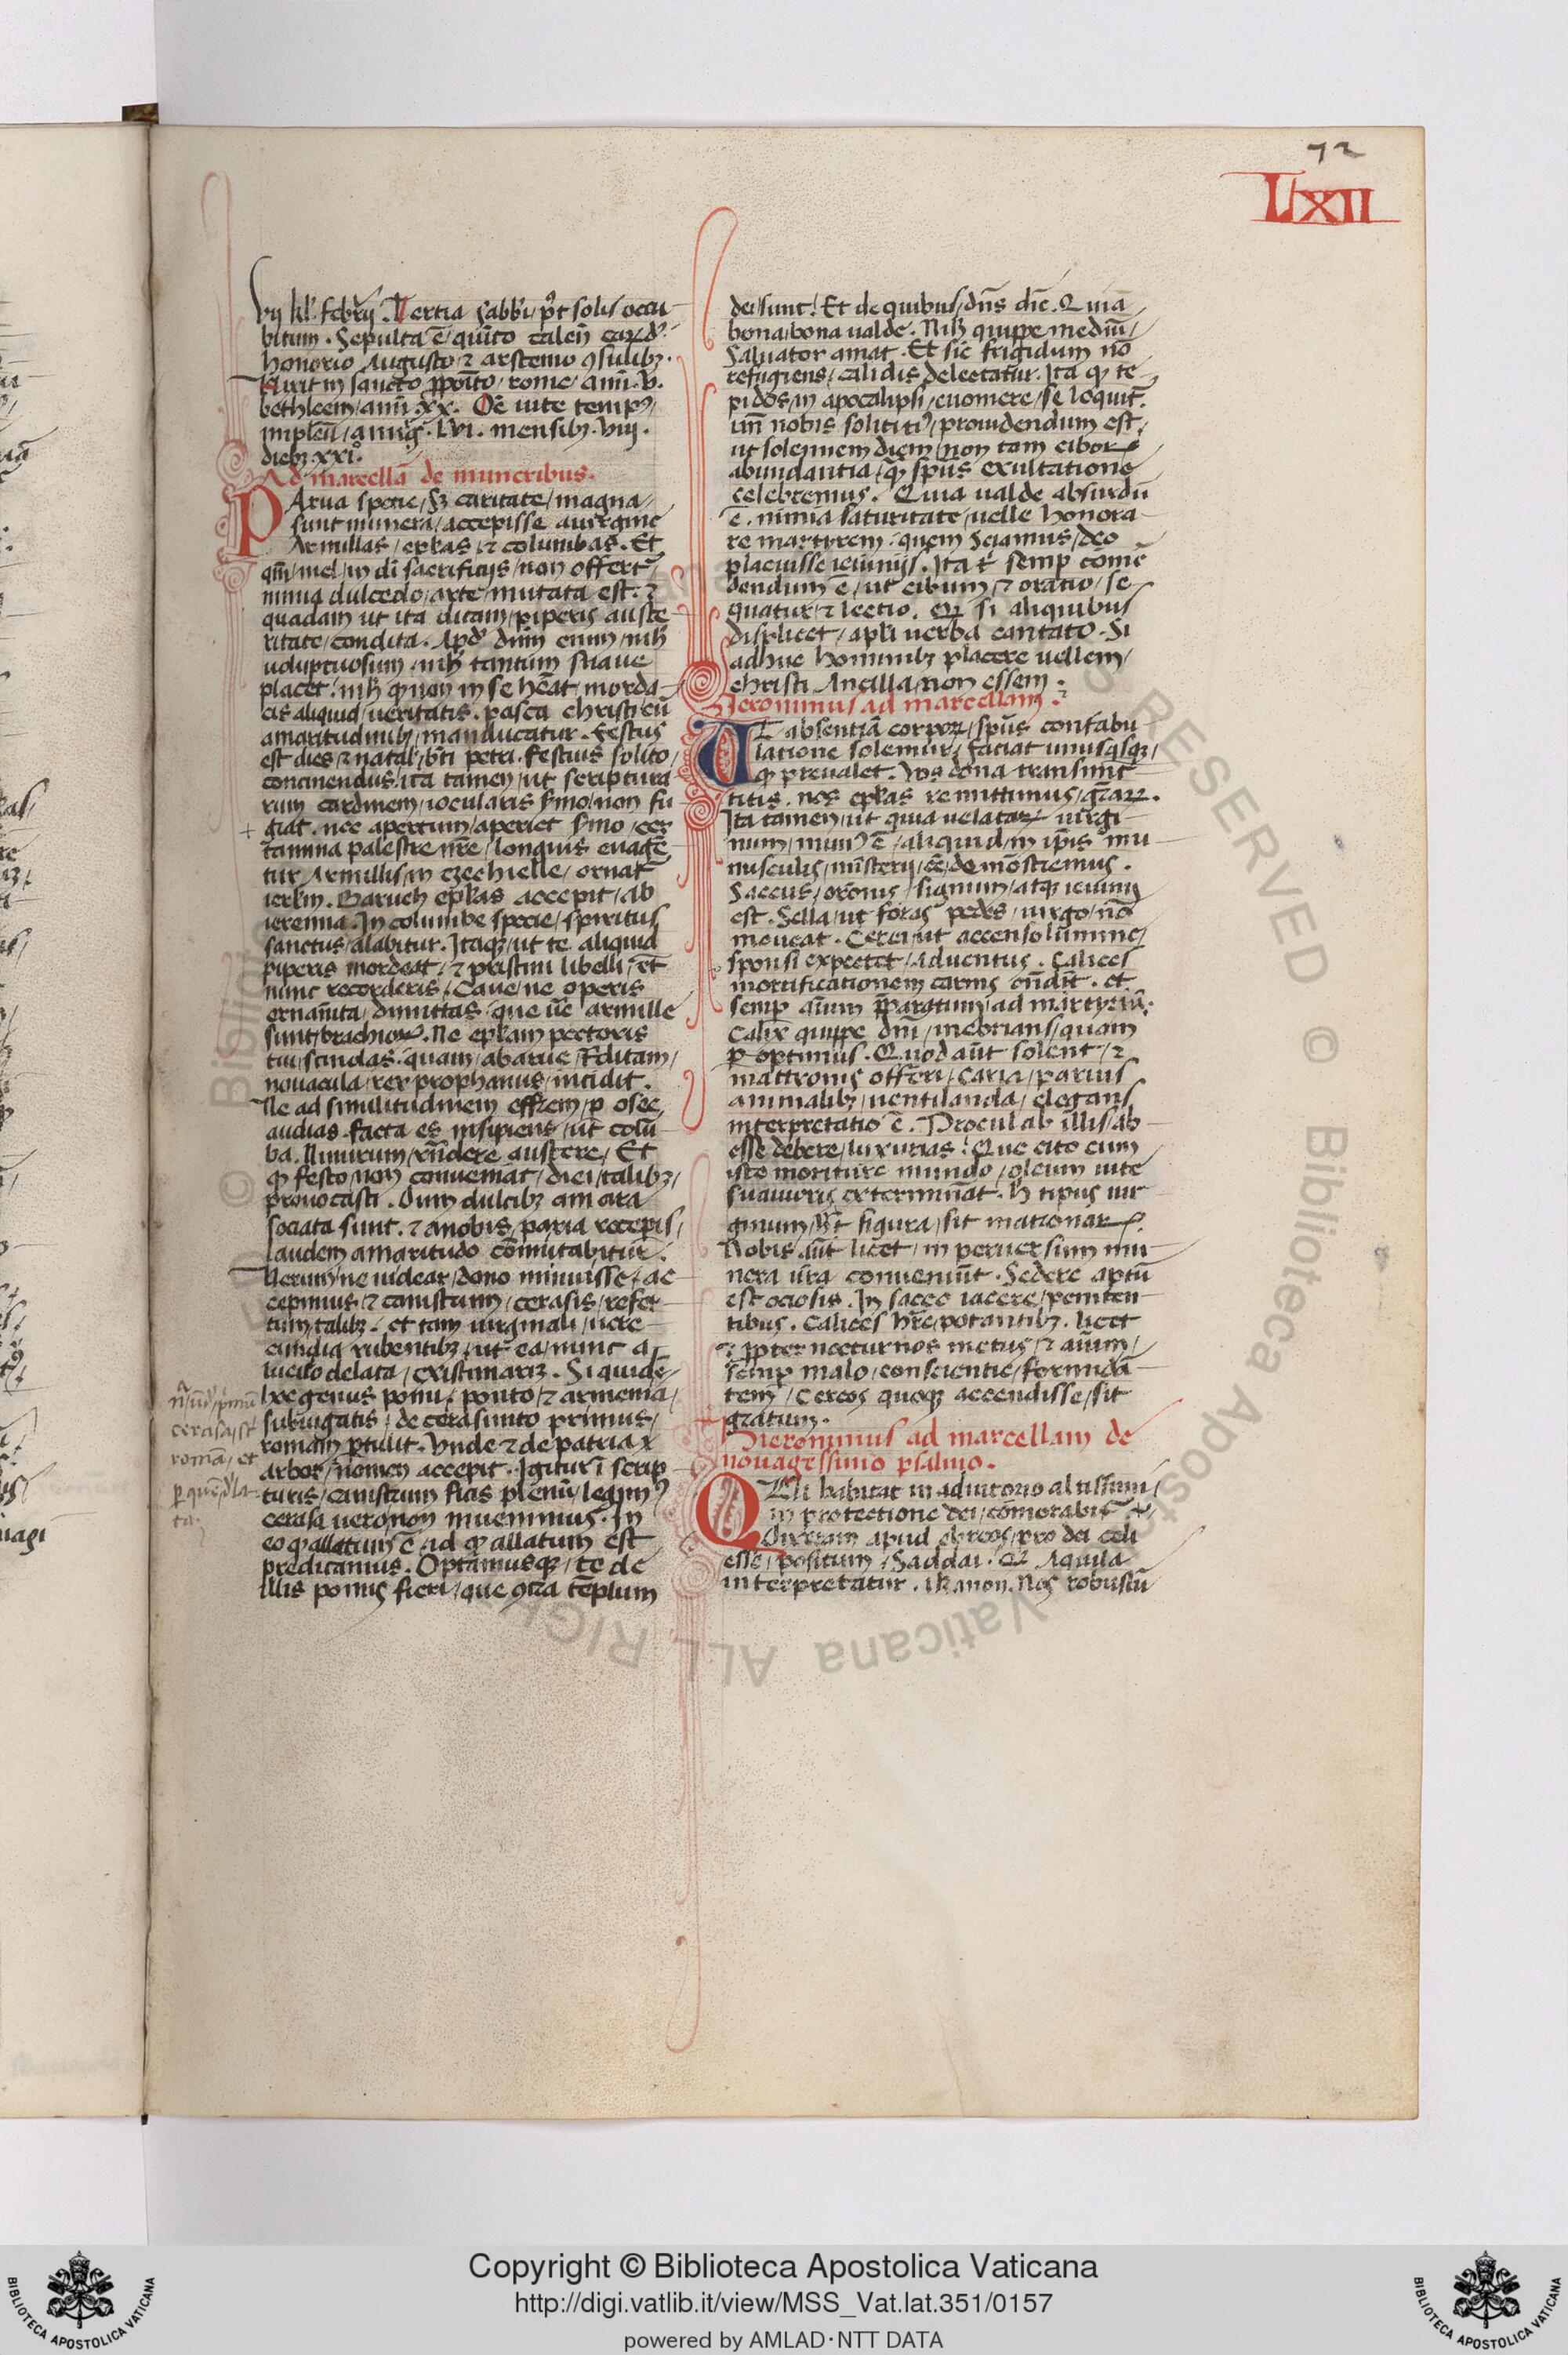 72
LXII
vij kl' febrij. Tertia sabbi / pt solis occu
bitum. Sepulta ē / quīto calen̄ eard'.
honorio Augusto / ⁊ aristemo ꝯsulibꝫ.
Vixit in sancto ꝓpoīto / rome / anīi. v.
bethleem / anīi. xx. Oē uite tempꝰ /
impleū / annis. Lvi. mensibꝫ. viij.
diebꝫ xxi.
Ad marcellā de muneribus.
PArua specie / sꝫ caritate / magna /
sunt munera / accepisse auirgine
Armillas / eplas / ⁊ columbas. Et
qm̄ / mel / in di sacrificijs / non offertᷣ
nimia dulcedo / arte / mutata est. ⁊
quadam ut ita dicam / piperis auste
ritate / condita. Apd' dūm enim / nih̄
uoluptuosum / nih̄ tantum suaue
placet. nih̄ qͥ non in se hēat / morda
cis aliquid / ueritatis. pasca christi cū
amaritudinibꝫ / manducatur. Festus
est dies / ⁊ natal' / bt̄i petri. festius solito /
concinendus / ita tamen / ut scriptura
rum cardinem / iocularis ẜmo / non fu
giat. nec apertum / aperiet ẜmo / cer
tamina palestre nr̄e / longius euagē
tur Armillis / in ezechielle / ornatᷣ
ierlm. Baruch eplas accepit / ab
ieremia. In columbe specie / spiritus
sanctus / alabitur. Itaqꝫ / ut te aliquid
piperis mordeat / ⁊ pristini libelli / et
nunc recorderis / Caue / ne operis
ernam̄ta / dimittas / que ue armille
sunt / brachioꝝ. Ne eplam pectoris
tui / scindas. quam / abarue / t̄ditam /
nouacula / rex prophanus / incidit.
Ne ad similitudinem effrem / p osee,
audias. facta es insipiens / ut colū
ba. Nimirum / rn̄dere austere / Et
qͥ festo / non conueniat / diei / talibꝫ /
prouocasti. Cum dulcibꝫ amara
sociata sunt. ⁊ anobis / paria recepis /
laudem amaritudo cōmutabitur.
Verum / ne uidear / dono minuisse / ac
cepimus / ⁊ canistrum / cerasis / refer
tum / talibꝫ. et tam uirginali / uere
cundia rubentibꝫ / ut ea / nunc a
lucullo delata / existimariz. Siquidē
hoc genus pomi / ponto / ⁊ armenia /
subiugatis / de cerasunto primus /
romam ptulit. Vnde ⁊ de patria
arbor / nomen accepit. Igitur ī scrip
turis / canistrum ficis plenū / legimꝰ
cerasa uero / non inuenimus. In
eo qͥ allatum ē / id qͥ allatum est
predicamus. Optamusqꝫ / te de
illis pomis fieri / que ꝯtra tēplum
cerasa / st
romā / et
dei sunt. Et de quibus / dn̄s dic̄. Quia
bona / bona ualde. Nih̄ quippe mediū /
Saluator amat. Et sic frigidum nō
refugiens / calidis delectatur. Ita qͥ te
pidos / in apocalipsi / euomere / se loquit.
un̄ nobis solititꝰ / prouidendum est,
ut solennem diem / non tam ciboꝝ
abundantia / qͣ sp̄us exultatione
celebremus. Quia ualde absurdū
ē. nimia saturitate / uelle honora
re martyrem. quem sciamus / deo
placuisse ieiunijs. Ita t̄ semp cōme
dendum ē / ut cibum / ⁊ oratio / se
quatur / ⁊ lectio. Qꝫ si aliquibus
displicet / apli uerba cantato. Si
adhuc hominibꝫ placere uellem /
christi Ancilla / non essem.
Jeronimus ad marcellam.
UT absentiā corpoꝝ / sp̄us confabu
latione solemur / faciat unusqsqꝫ /
qͥ preualet. Vos dona transmit
titis. nos eplas remittimus / gr̄aꝝ.
Ita tamen / ut quia uelataꝝ uirgi
num / munꝰ ē / aliquid / in ip̄is mu
nusculis / mīsterij / eē / demōstremus.
Saccus / oronis / signum / atqꝫ ieiunij
est. Sella / ut foras pedes / uirgo / nō
moueat. Cerei / ut accenso lumine /
sponsi expectet / aduentus. Calices
mortificationem carnis on̄dūt. et
semp aīum p̄paratum / ad martyriū.
Calix quippe dn̄i / inebrians / quam
p optimus. Quod aūt solent / ⁊
mattronis offeri / caria / paruis
animalibꝫ / uentilanda / elegans
interpretatio ē. Procul ab illis / ab
esse debere / luxurias. Que cito cum
isto moriture mundo / oleum uite
suauioris exterminat. H tipus uir
ginum / ⁊ figura / sit mationaꝝ.
Nobis aūt licet / in peruersum mu
nera ūra conueniūt. Sedere aptū
est ociosis. In sacco iacere / peniten
tibus. Calices hr̄e / potantibꝫ. licet
⁊ ꝓpter nocturnos metus / ⁊ aīum /
semp malo / conscientie / formidā
tem / Cereos quoqꝫ accendisse / sit
gratum.
Hieronimus ad marcellam de
nouagessimo psalmo.
QUi habitat in adiutorio altissimi /
in protectione dei / cōmorabit.
Dixeram apud ebreos / pro dei celi
esse / positum / Saddai. Qꝫ Aquila
interpretatur. ikanon. Nos robustū
Copyright © Biblioteca Apostolica Vaticana
http://digi.vatlib.it/view/MSS_Vat.lat.351/0157
powered by AMLAD·NTT DATA
BIBLIOTECA APOSTOLICA VATICANA
BIBLIOTECA APOSTOLICA VATICANA